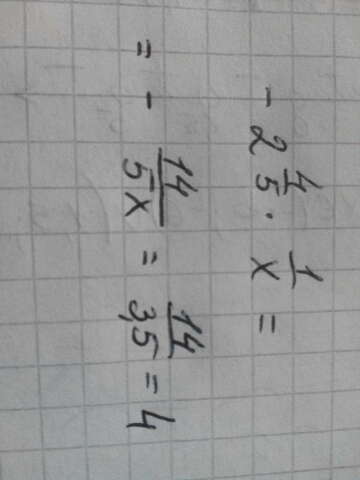 - 2 4/5 · 1/x =
= - 14/5x = 14/3,5 = 4